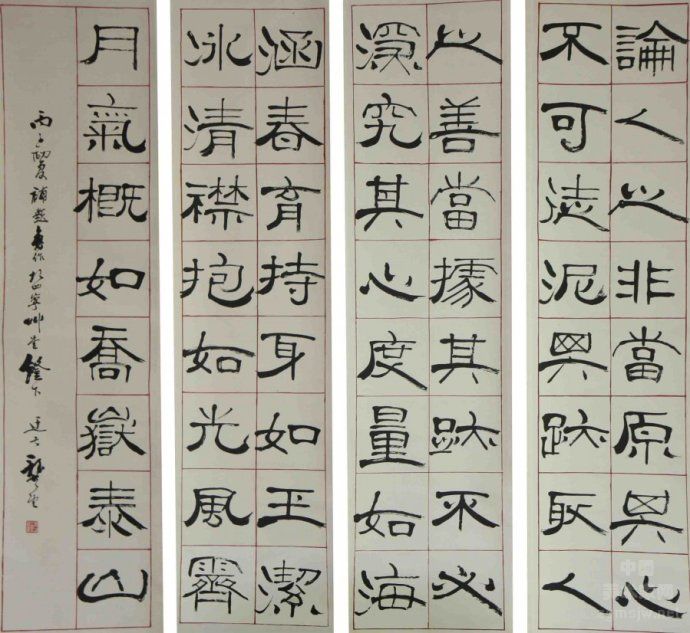 論人之非當原其心
不可徒泥其跡取人
之善當據其跡不必
深究其心度量如海
涵春育持身如玉潔
冰清襟抱如光風霽
月氣概如喬嶽泰山
初夏 作於 艸堂鐙下